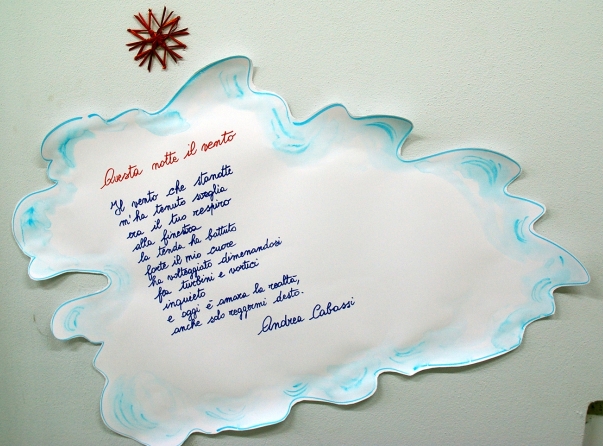 Questa notte il vento
Il vento che stanotte
m'ha tenuto sveglia
era il tuo respiro
alla finestra
la tenda ha battuto
forte il mio cuore
ha volteggiato dimenandosi
fra turbini e vortici
inquieto
e oggi è amara la realtà,
anche solo reggermi desto.
Andrea Cabassi